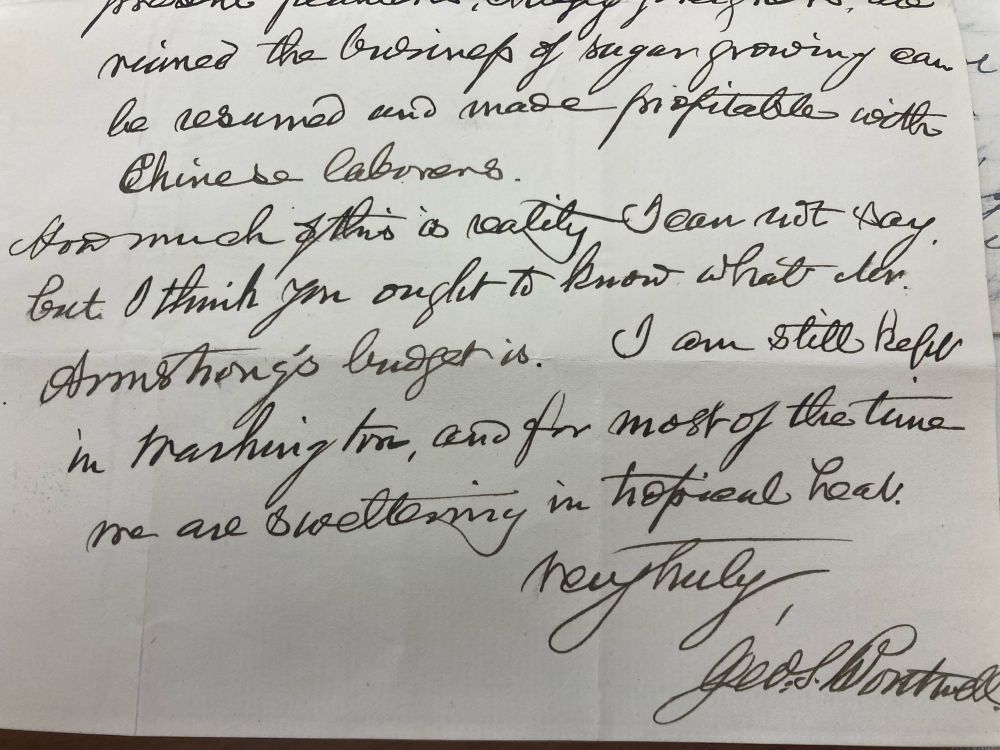 present planters, chiefly foreigners, are
ruined the business of sugar growing can
be resumed and made profitable with
Chinese laborers.
How much of this is reality I can not say,
but I think you ought to know what Mr.
Armstrong's budget is. I am still kept
in Washington, and for most of the time
we are sweltering in tropical heat.
Very truly,
Geo. S. Boutwell.